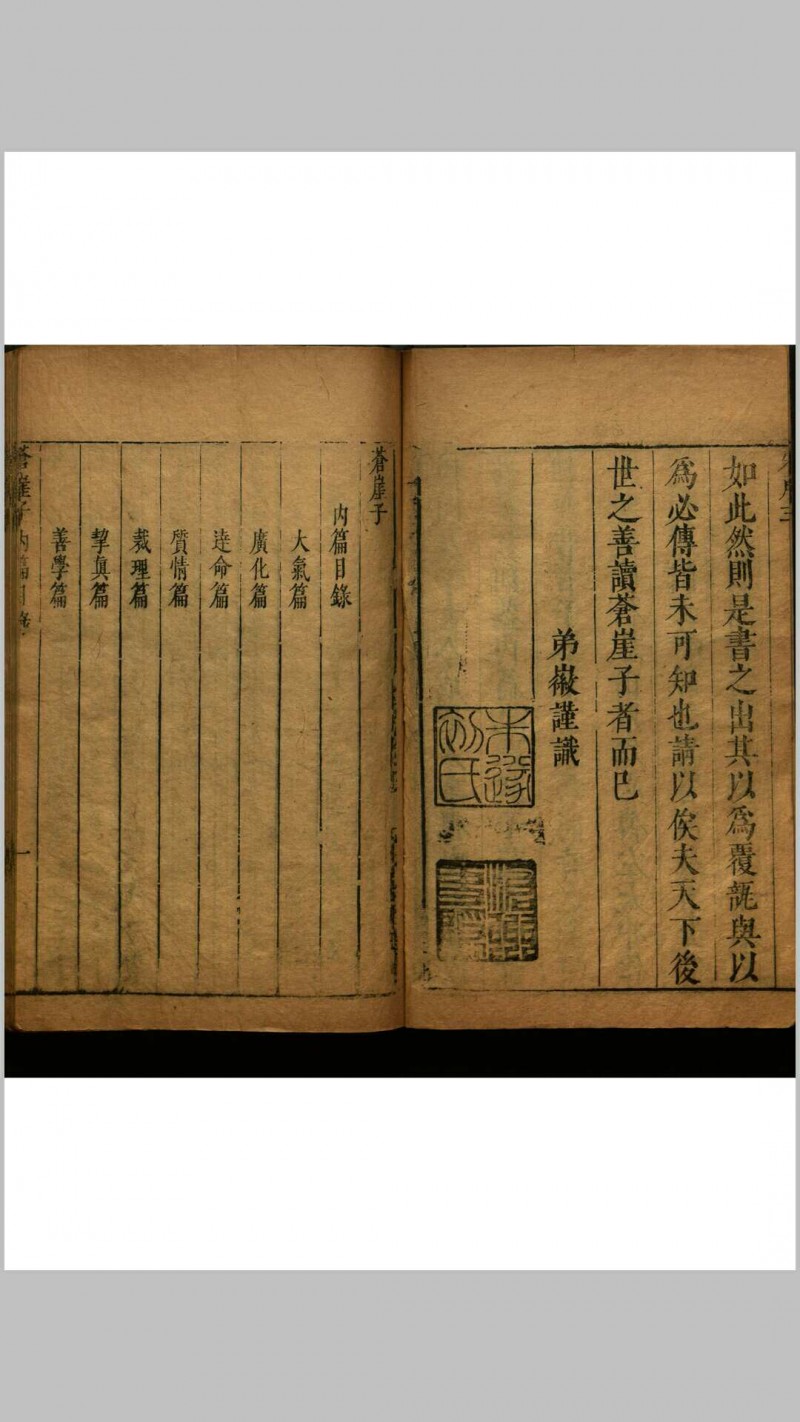 如此然則是書之出其以爲覆瓿與以
爲必傳皆未可知也請以俟夫天下後
世之善讀蒼崖子者而已
弟徽謹識
蒼崖子
內篇目錄
大氣篇
廣化篇
達命篇
質情篇
裁理篇
挈真篇
善學篇
蒼崖子內篇目錄
一